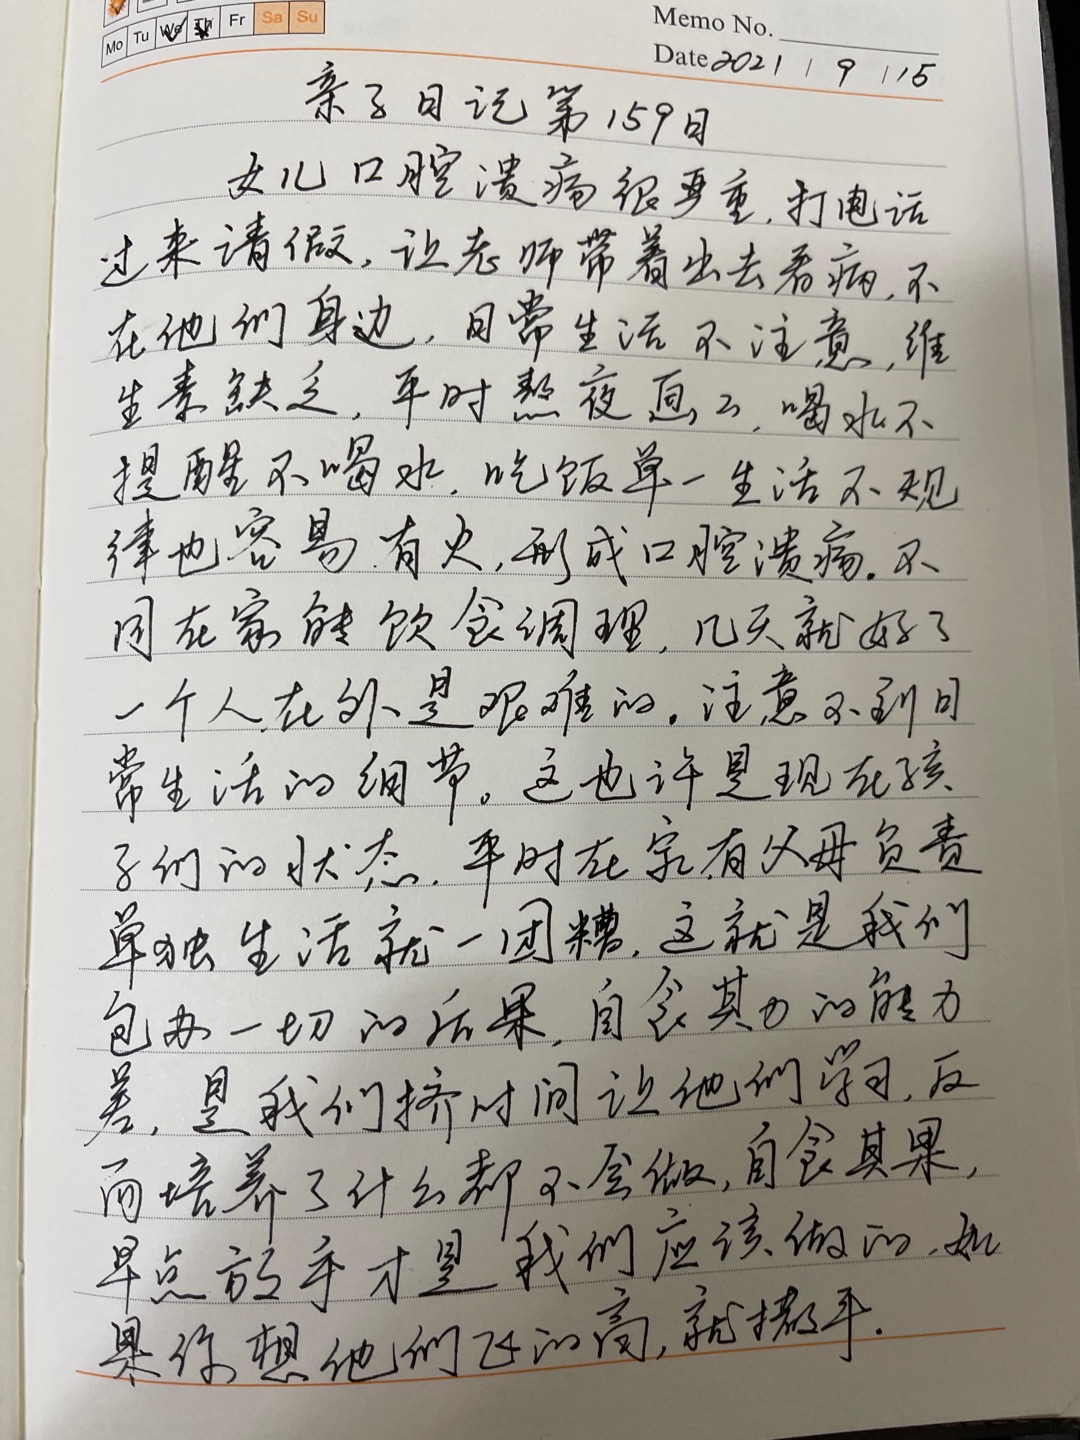 Mo Tu We Th Fr Sa Su
Memo No.
Date 2021 / 9 / 15
亲子日记第159日
女儿口腔溃疡很严重,打电话
过来请假,让老师带着出去看病,不
在他们身边,日常生活不注意,维
生素缺乏,平时熬夜,喝水不
提醒不喝水,吃饭单一生活不规
律也容易有火,形成口腔溃疡。不
同在家能饮食调理,几天就好了
一个人在外是艰难的。注意不到日
常生活的细节。这也许是现在孩
子们的状态,平时在家有父母负责
单独生活就一团糟,这就是我们
包办一切的后果,自食其力的能力
差,是我们挤时间让他们学习,反
而培养了什么都不会做,自食其果,
早点放手才是我们应该做的,如
果你想他们飞的高,就撒手.